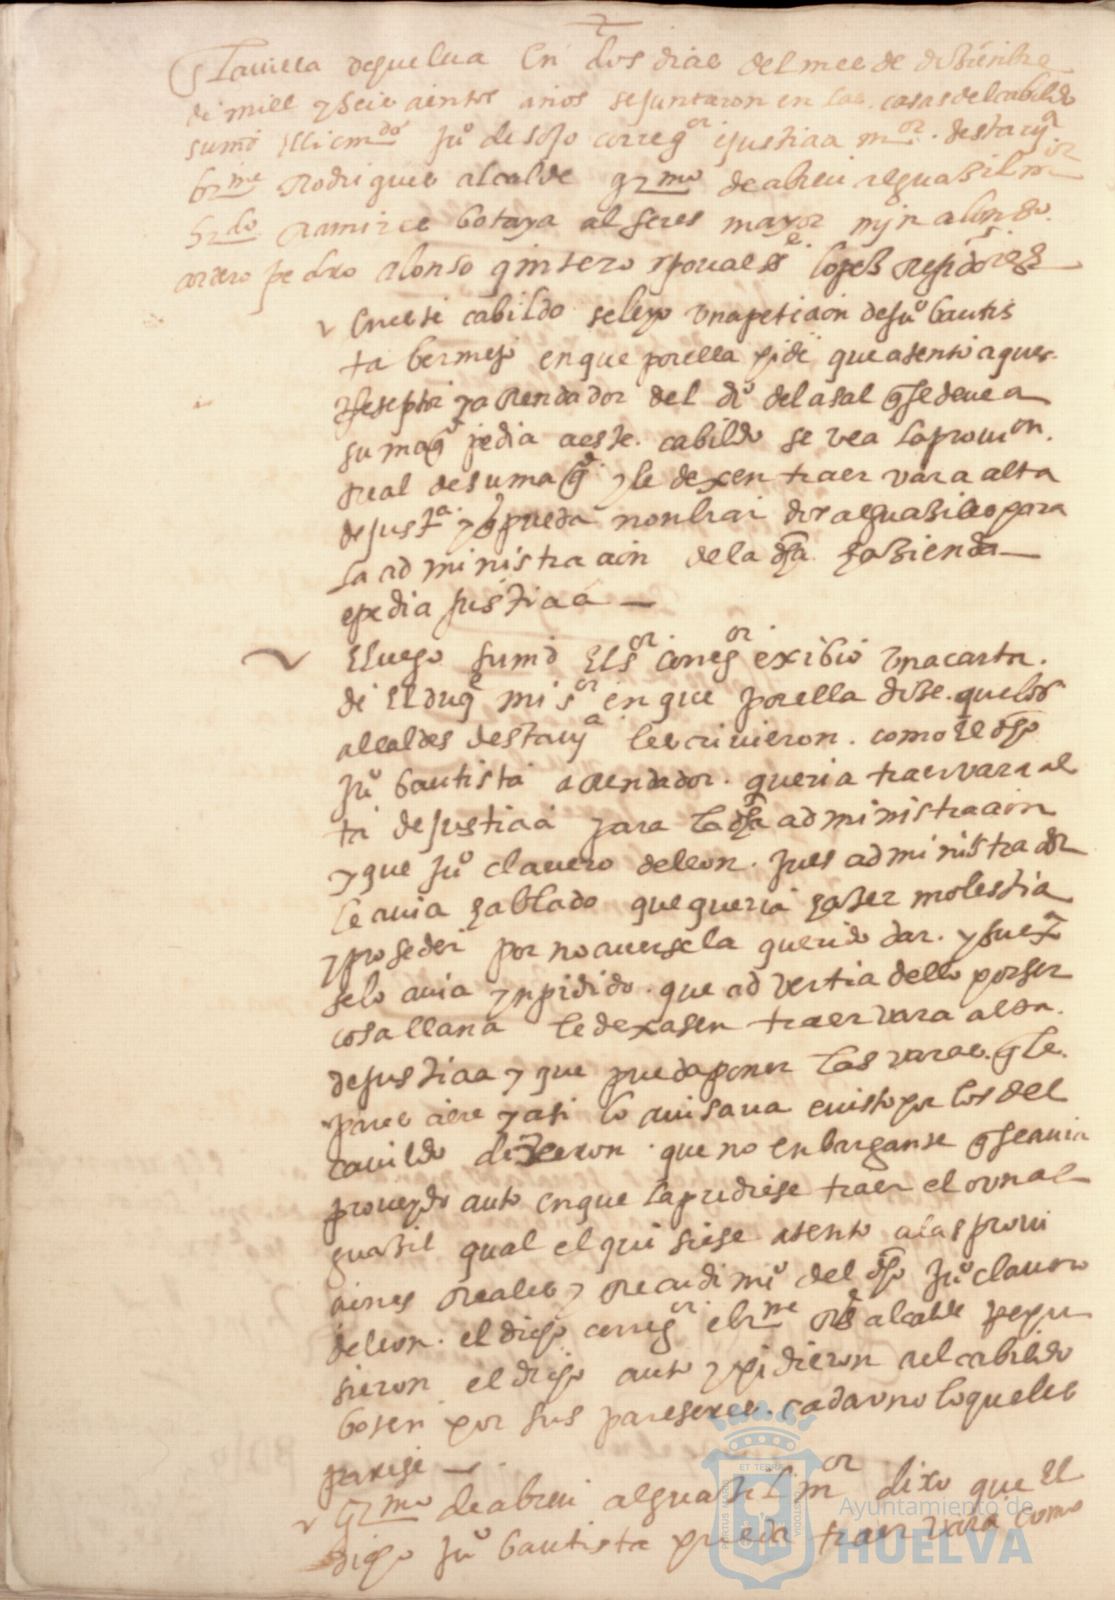 En la villa de guelua En dos dias del mes de disienbre
de mill y seis aientos años se juntaron en las casas del cabildo
su md El licendo ju° de soJo corregor e justiaa mor desta va
brme Rodrigues alcalde grmo de abreu alguasil mor
brdo Ramires botaya alferes mayor mjn alonso
pedro alonso quintero gonsales lopes Regidores
En este cabildo se leyo vna petiaion de ju° bautis
ta bermejo en que por ella pide que atento a ques
Reseptor y a Rendador del d° de la sal q se deue a
su magd pedia a este cabildo se vea la prouon
Real de su magd y le dexen traer vara alta
de justa y q pueda nonbrar dos alguasiles para
la administraaion de la dha hasienda
e pedia justiaa
E luego su md El sor corregor exibio vna carta
del El duqe mi sor en que por ella dise que los
alcaldes desta va le escriuieron como El dho
ju° bautista a Rendador queria traer vara al
ta de justiaa para la dha administraaion
y que ju° clauero de leon jues administrador
le auia hablado que queria haser molestia
y proseder por no auersela querido dar y su exa
selo auia ynpidido que advertia dello por ser
cosa llana le dexasen traer vara alta
de justiaa y que pueda poner las varas q le
pares aiere y asi lo auisaua e uisto por los del
cauildo dixeron que no enbargante q se auia
proueydo auto en que la pudiese traer el o vn al
guasil qual el quisiese atento a las proui
aiones Reales y Recudimi° del dho ju° clauero
de leon el dicho corregor e brme Rs alcalde Repu
sieron el dicho auto y pidieron al cabildo
boten por sus pareseres cada vno lo que les
parese
grmo de abreu alguasil mor dixo que El
dicho ju° bautista pueda traer vara como
Ayuntamiento de
HUELVA